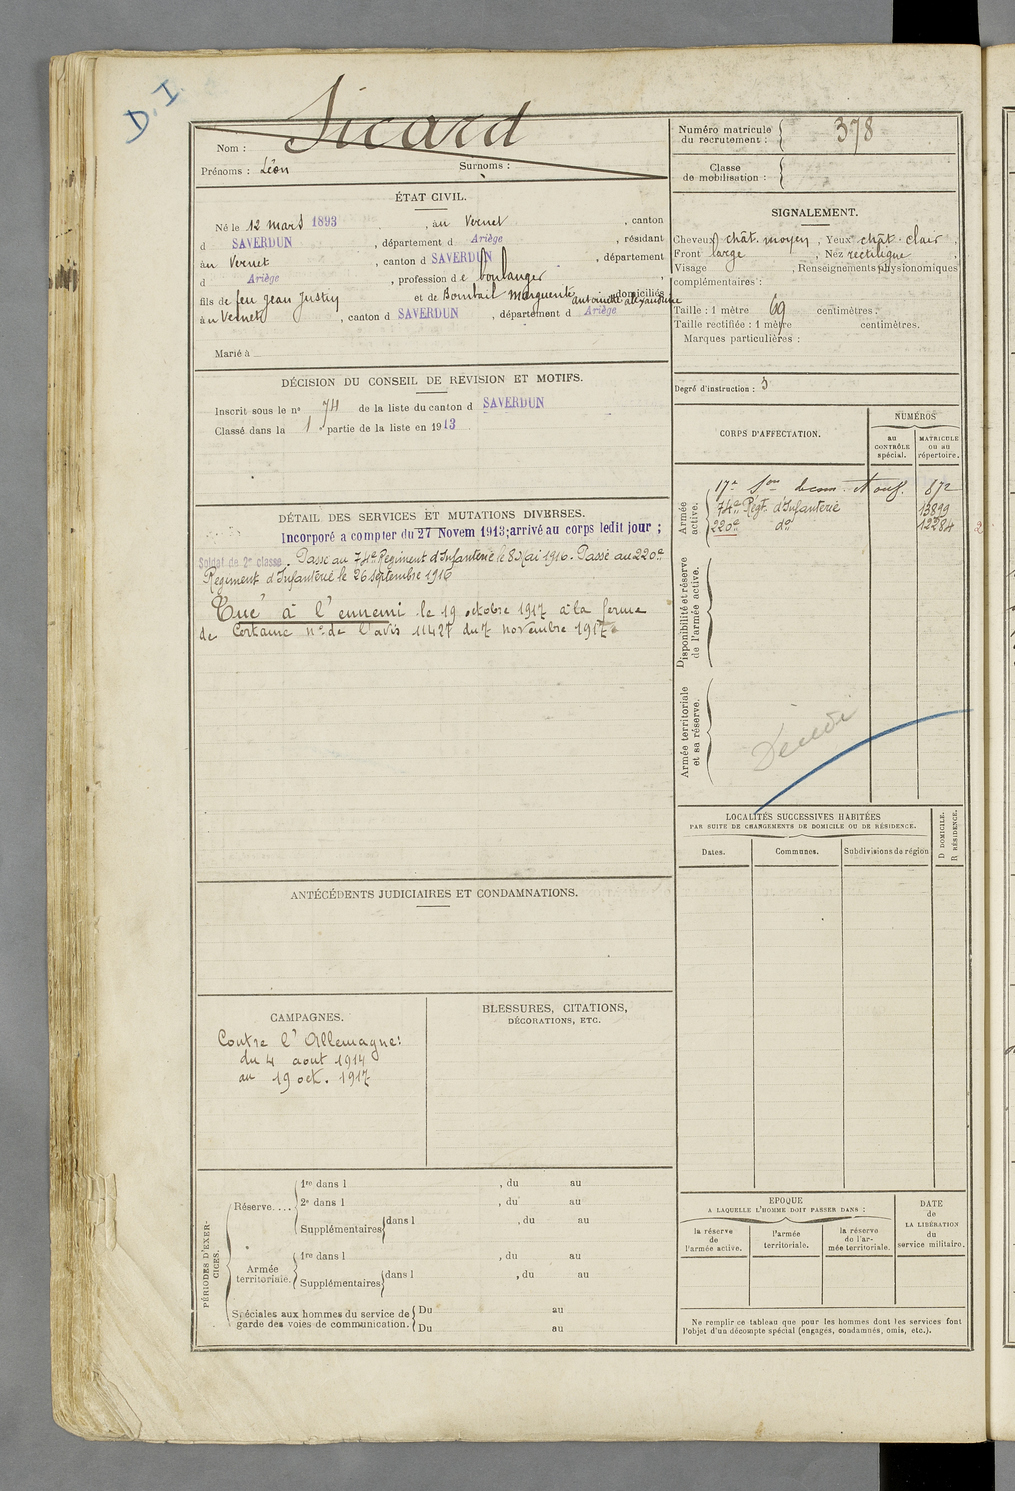 D. I.
Sicard
Nom :
Prénoms : Léon Surnoms :
Numéro matricule du recrutement : 378
Classe de mobilisation :
ÉTAT CIVIL.
Né le 12 mars 1893, au Vernet, canton
d SAVERDUN, département d Ariège, résidant
au Vernet, canton d SAVERDUN, département
d Ariège, profession de boulanger,
fils de feu Jean Justin et de Bombail Marguerite antoinette alexandrine domiciliés
à au Vernet, canton d SAVERDUN, département d Ariège
Marié à
SIGNALEMENT.
Cheveux chât. moyen, Yeux chât. clair,
Front large, Nez rectiligne,
Visage , Renseignements physionomiques
complémentaires :
Taille : 1 mètre 69 centimètres.
Taille rectifiée : 1 mètre centimètres.
Marques particulières :
Degré d'instruction : 3
DÉCISION DU CONSEIL DE REVISION ET MOTIFS.
Inscrit sous le n° 74 de la liste du canton d SAVERDUN
Classé dans la 1 partie de la liste en 1913
CORPS D'AFFECTATION.
NUMÉROS
au CONTRÔLE spécial.
MATRICULE ou au répertoire.
Armée active.
17e Son 872
74e Régt. d'Infanterie 13899
220e do 12284
2
Disponibilité et réserve de l'armée active.
Armée territoriale et sa réserve.
DÉTAIL DES SERVICES ET MUTATIONS DIVERSES.
Incorporé a compter du 27 Novem 1913; arrivé au corps ledit jour ;
Soldat de 2e classe. Passé au 74e Régiment d'Infanterie le 8 Mai 1916. Passé au 220e
Régiment d'Infanterie le 26 septembre 1916
Tué à l'ennemi le 19 octobre 1917 à la ferme
de Certaine n° de l'avis 11427 du 7 novembre 1917
LOCALITÉS SUCCESSIVES HABITÉES
PAR SUITE DE CHANGEMENTS DE DOMICILE OU DE RÉSIDENCE.
Dates.
Communes.
Subdivisions de région
D DOMICILE.
R RÉSIDENCE.
ANTÉCÉDENTS JUDICIAIRES ET CONDAMNATIONS.
CAMPAGNES.
Contre l'Allemagne:
du 4 aout 1914
au 19 oct. 1917
BLESSURES, CITATIONS,
DÉCORATIONS, ETC.
PÉRIODES D'EXERCICES.
Réserve....
1re dans l , du au
2e dans l , du au
Supplémentaires dans l , du au
Armée territoriale.
1re dans l , du au
Supplémentaires dans l , du au
Spéciales aux hommes du service de garde des voies de communication.
Du au
Du au
EPOQUE
A LAQUELLE L'HOMME DOIT PASSER DANS :
la réserve de l'armée active.
l'armée territoriale.
la réserve de l'armée territoriale.
DATE de LA LIBÉRATION du service militaire.
Ne remplir ce tableau que pour les hommes dont les services font
l'objet d'un décompte spécial (engagés, condamnés, omis, etc.).